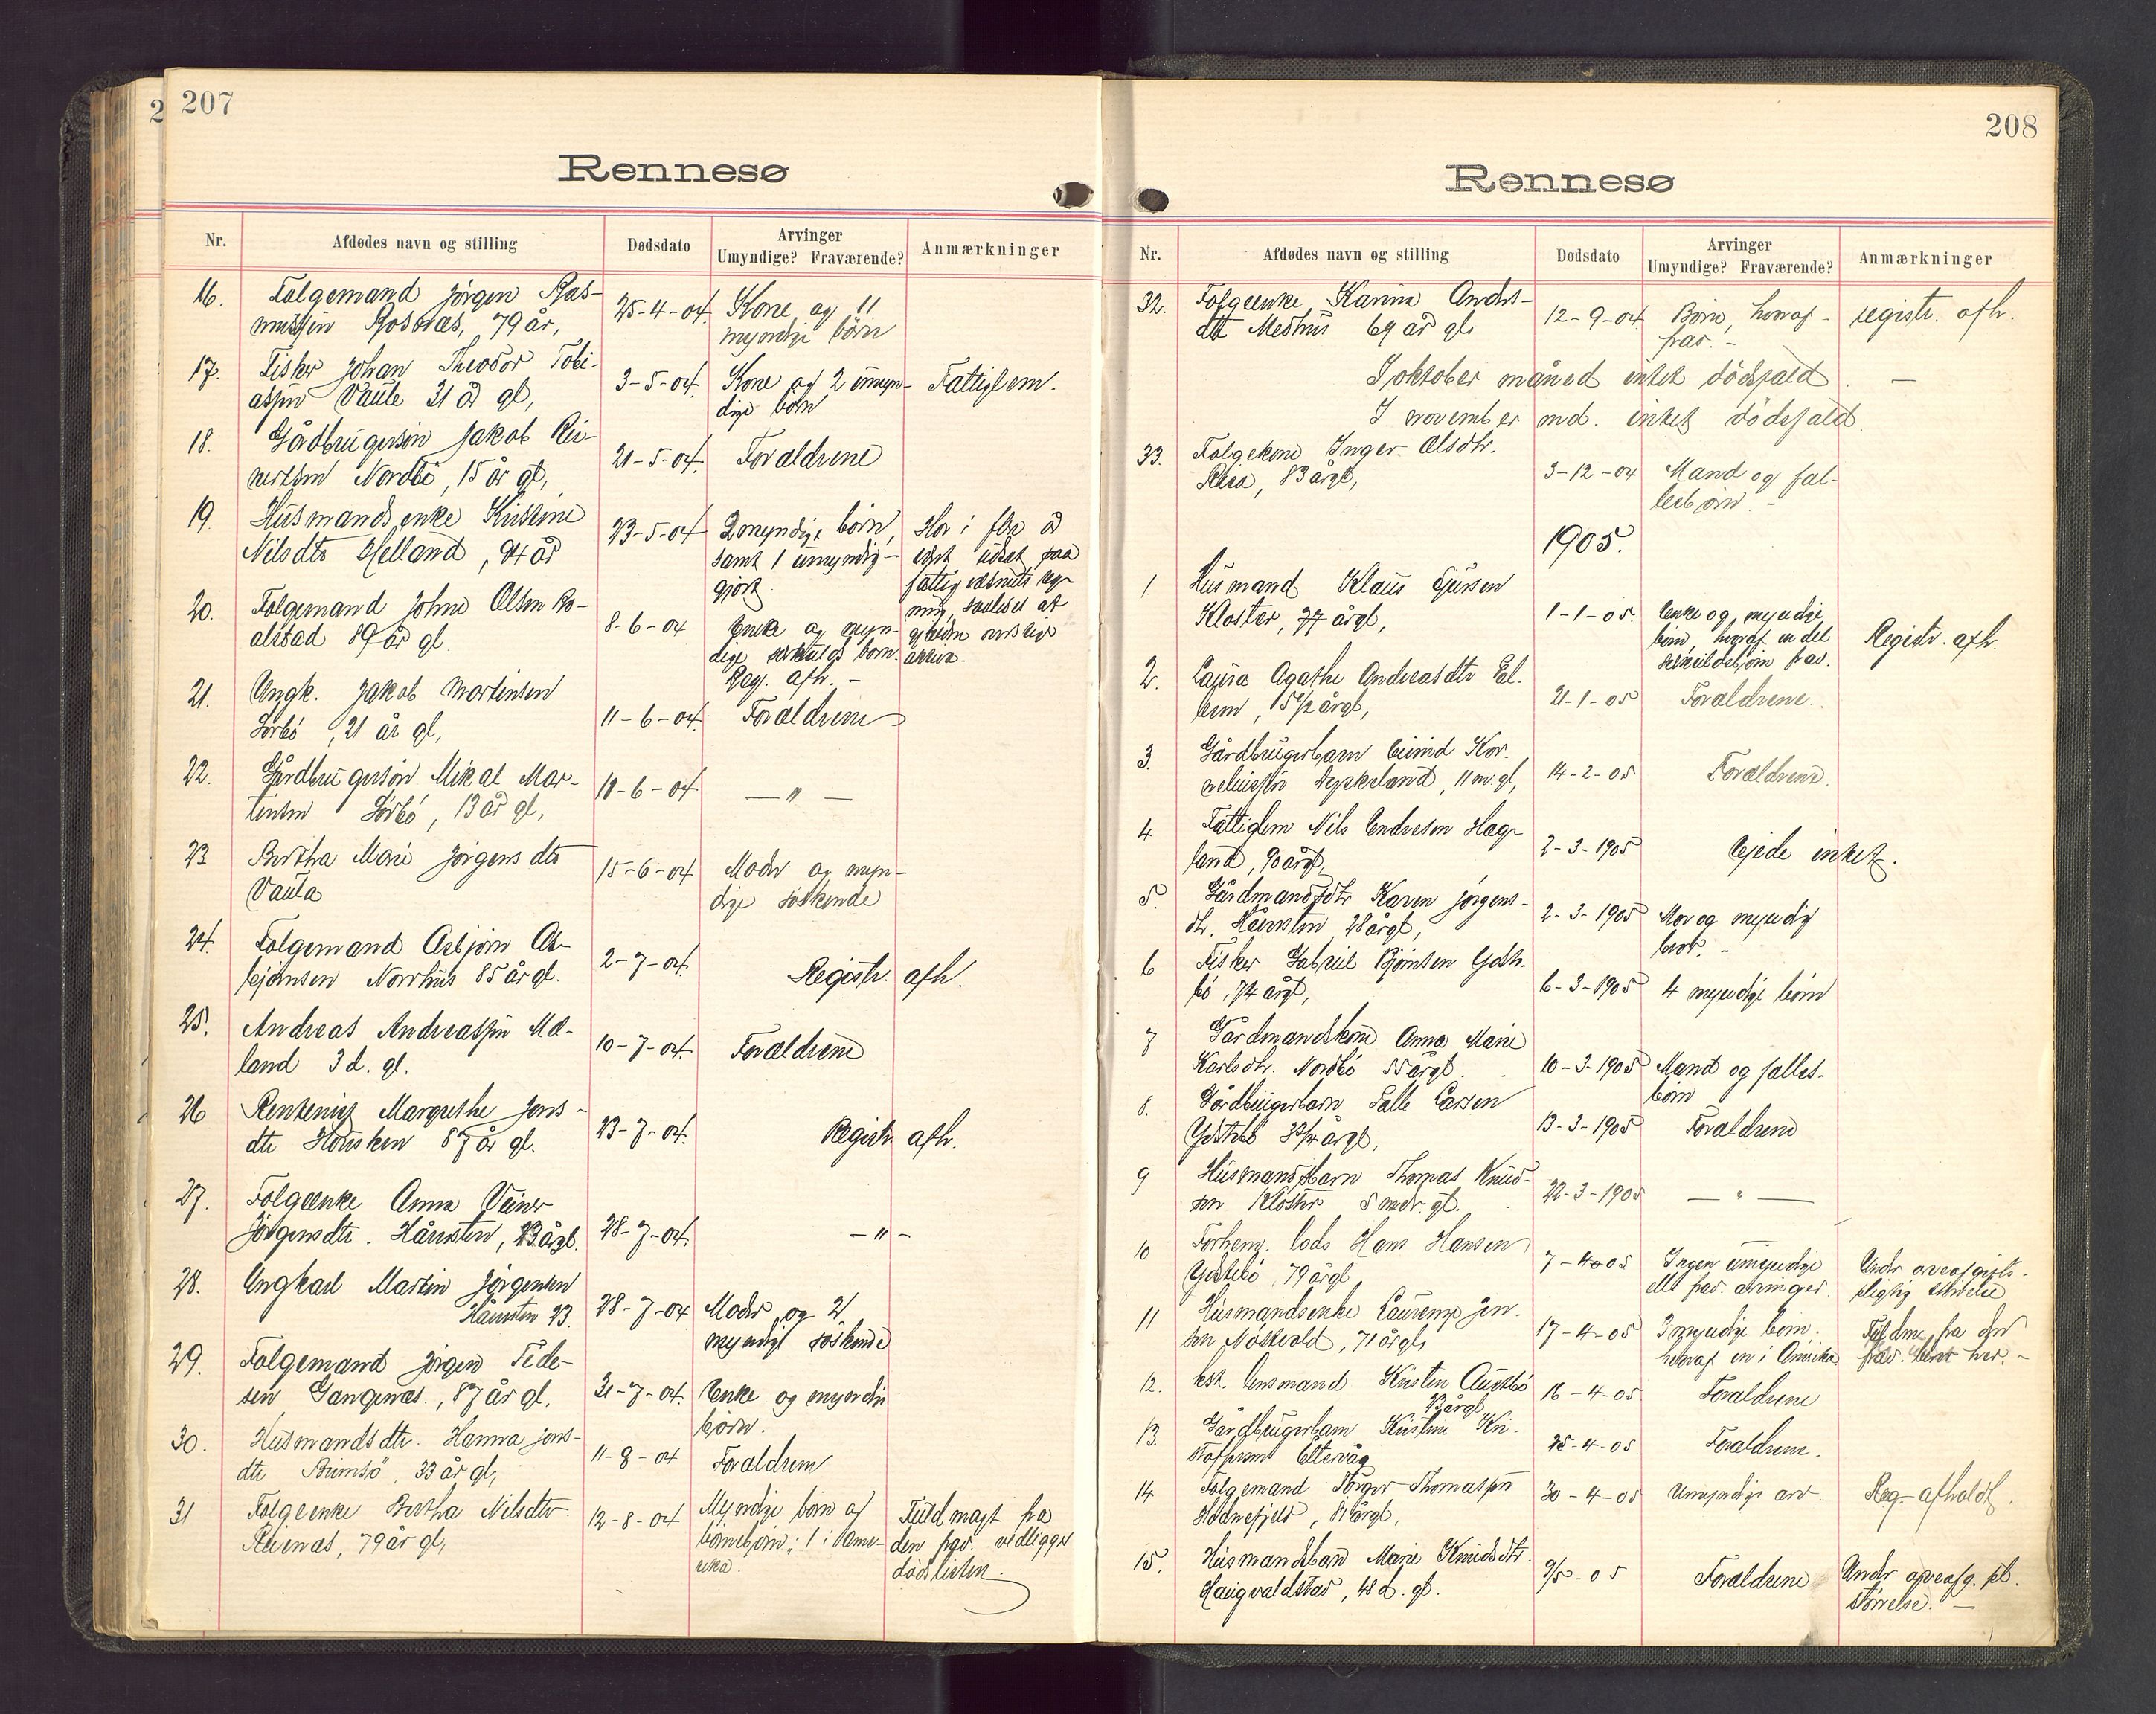 2
207
Rennesø
Nr.
Afdødes navn og stilling
Dødsdato
Arvinger
Umyndige? Fraværende?
Anmærkninger
16. Følgemand Jörgen Ras-
mussen Rosnæs, 79 år, 25-4-04. Kone og 11
myndige börn
17. Fisker Johan Theodor Tobi-
assen Vaula 31 år gl, 3-5-04. Kone og 2 umyn- Fattiglem.
dige börn
18. Gårdbrugersön Jakob Rei-
nertsen Nordbö, 15 år gl, 21-5-04. Forældrene
19. Husmandsenke Kristine
Nilsdtr Helland, 94 år 23-5-04 2 myndige börn,
samt 1 umyndig-
gjort.
Har i flere år
været udsat paa
fattigvæsenets reg-
ning, saaledes at
20. Følgemand Johne Olsen Ro-
alstad 89 år gl. 8-6-04 Enke og myn-
dige særkulds börn.
Reg. afh. -
21. Ungk. Jakob Mortensen
Sörbö, 21 år gl, 11-6-04. Forældrene
22. Gårdbrugersön Mikal Mor-
tensen Sörbö, 13 år gl, 18-6-04 — " —
23 Bertha Marie Jörgensdtr
Vaula 15-6-04 Moder og myn-
dige söskende
24. Følgemand Asbjörn As-
björnsen Norrhus 85 år gl. 2-7-04. Registr. afh.
25. Andreas Andreassen Mæ-
land 3 d. gl. 10-7-04. Forældrene
26 Rentenist Margrethe Jons-
dtr Hausken 87 år gl. 23-7-04. Registr. afh.
27. Følgeenke Anna Veiner
Jörgensdtr. Håusten, 83 årgl. 28-7-04. — " —
28. Ungkarl Martin Jörgensen
Håusten 23. 28-7-04 Moder og 2
myndige söskende
29. Følgemand Jörgen Tede-
sen Gangenæs, 87 år gl. 31-7-04. Enke og myndige
börn.
30. Husmandsdtr. Hanna Jons-
dtr Brimsö, 33 år gl, 11-8-04 Forældrene
31 Følgeenke Bertha Nilsdtr
Reinæs, 79 år gl, 12-8-04 Myndige börn og
börnebörn; 1 i Ame-
rika.
Fuldmagt fra
den frav. vedligger
dödslisten.
208
Rennesø
Nr.
Afdødes navn og stilling
Dødsdato
Arvinger
Umyndige? Fraværende?
Anmærkninger
32. Følgeenke Karina Anders-
dtr Medhus 69 år gl. 12-9-04 Börn, hvoraf registr. afh.
frav. -
I oktober måned intet dödsfald. —
I november md. intet dödsfald.
33. Følgekone Inger Olsdtr.
83 årgl, 3-12-04 Mand og fæl-
lesbörn. -
1905.
1 Husmand Klaus Sjursen
Kloster, 77 årgl, 1-1-05. Enke og myndige
börn, hvoraf en del
særkuldsbörn frav.
Registr. afh.
2. Laura Agathe Andreasdtr Eel-
lem, 15 1/2 årgl, 21-1-05 Forældrene.
3. Gårdbrugerbarn Eivind Kor-
neliussen Dyskeland, 11 m gl, 14-2-05 Forældrene.
4 Fattiglem Nils Endresen Hæg-
land, 90 årgl, 2-3-1905 Ejede intet.
5. Gårdmandsdtr Karen Jörgens-
dtr. Håusten 28 årgl, 2-3-1905 Mor og myndig
bror. -
6 Fisker Gabriel Björnsen Gjest-
bö, 74 årgl, 6-3-1905 4 myndige börn
7 Gårdmandskone Anna Marie
Karlsdtr. Nordbö 55 årgl. 10-3-1905 Mand og fælles-
börn
8. Gårdbrugerbarn Salle Larsen
3 3/4 årgl, 13-3-1905 Forældrene
9 Husmandsbarn Thomas Knud-
sen Kloster 5 mdr. gl. 22-3-1905 — " —
10 Forhenv. lods Hans Hansen
79 årgl 7-4-05 Ingen umyndige
ell frav. arvinger.
Under arveafgifts-
pligtig störrelse
11 Husmandsenke Laurense Jen-
sen Nöskvold, 71 årgl, 17-4-05 3 myndige börn,
hvoraf en i Amerika
Fuldm. fra den
frav. bror her. -
12. Ansmand Kristen Austbö
23 årgl 16-4-05 Forældrene
13. Gårdbrugerbarn Kristine Kri-
stoffersen Eltervåg 25-4-05. Forældrene.
14 Følgemand Törger Thomassen
Hodnefjeld, 81 årgl, 30-4-05 Umyndige arv. Reg. afholdt.
15. Husmandsbarn Marie Knudsdtr.
Haugvaldstad, 48 d. gl. 9/5-05 Forældrene Under arveafg. pl.
störrelse. —